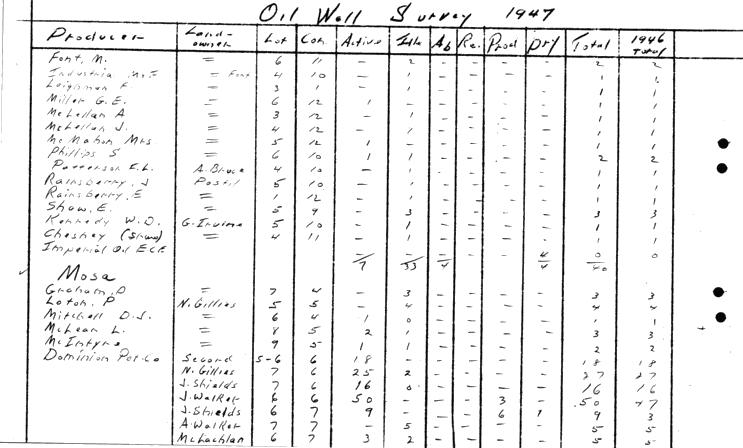 Oil Well Survey 1947
Producer Land-owner Lot Con. Active Idle Ab Re. Prod Dry Total 1946 Total
Font, M. = 6 11 - 2 - - - - 2 2
Industrial = Font 4 10 - 1 - - - - 1 1
Leighman F. = 3 1 - 1 - - - - 1 1
Miller G.E. = 6 12 1 - - - - - 1 1
McLellan A = 3 12 - 1 - - - - 1 1
McLellan J. = 4 12 - 1 - - - - 1 1
McMahon Mrs = 5 12 1 - - - - - 1 1
Phillips S = 6 10 1 1 - - - - 2 2
Patterson E.L. A. Bruce 4 10 - 1 - - - - 1 1
Rainsberry, J Postil 5 10 - 1 - - - - 1 1
Rainsberry, E = 1 12 - 1 - - - - 1 1
Shaw, E. = 5 9 - 3 - - - - 3 3
Kennedy W.D. G. Irvine 5 10 - 1 - - - - 1 1
Chesney (Shaw) = 4 11 - 1 - - - - 1 1
Imperial Oil - - - - - 4 0 0
7 33 4 4 40
Mosa
Graham, D = 7 4 - 3 - - - - 3 3
Loton, P N. Gillies 5 5 - 4 - - - - 4 4
Mitchell D.J. = 6 4 1 0 - - - - 1 1
McLean L. = 8 5 2 1 - - - - 3 3
McIntyre = 9 5 1 1 - - - - 2 2
Dominion Pet. Co Second 5-6 6 18 - - - - - 18 18
N. Gillies 7 6 25 2 - - - - 27 27
J. Shields 7 6 16 0 - - - - 16 16
J. Walker 6 6 50 - - - 3 - 50 47
J. Shields 6 7 9 - - - 6 1 9 3
A Walker 7 7 - 5 - - - - 5 5
McLachlan 6 7 3 2 - - - - 5 5